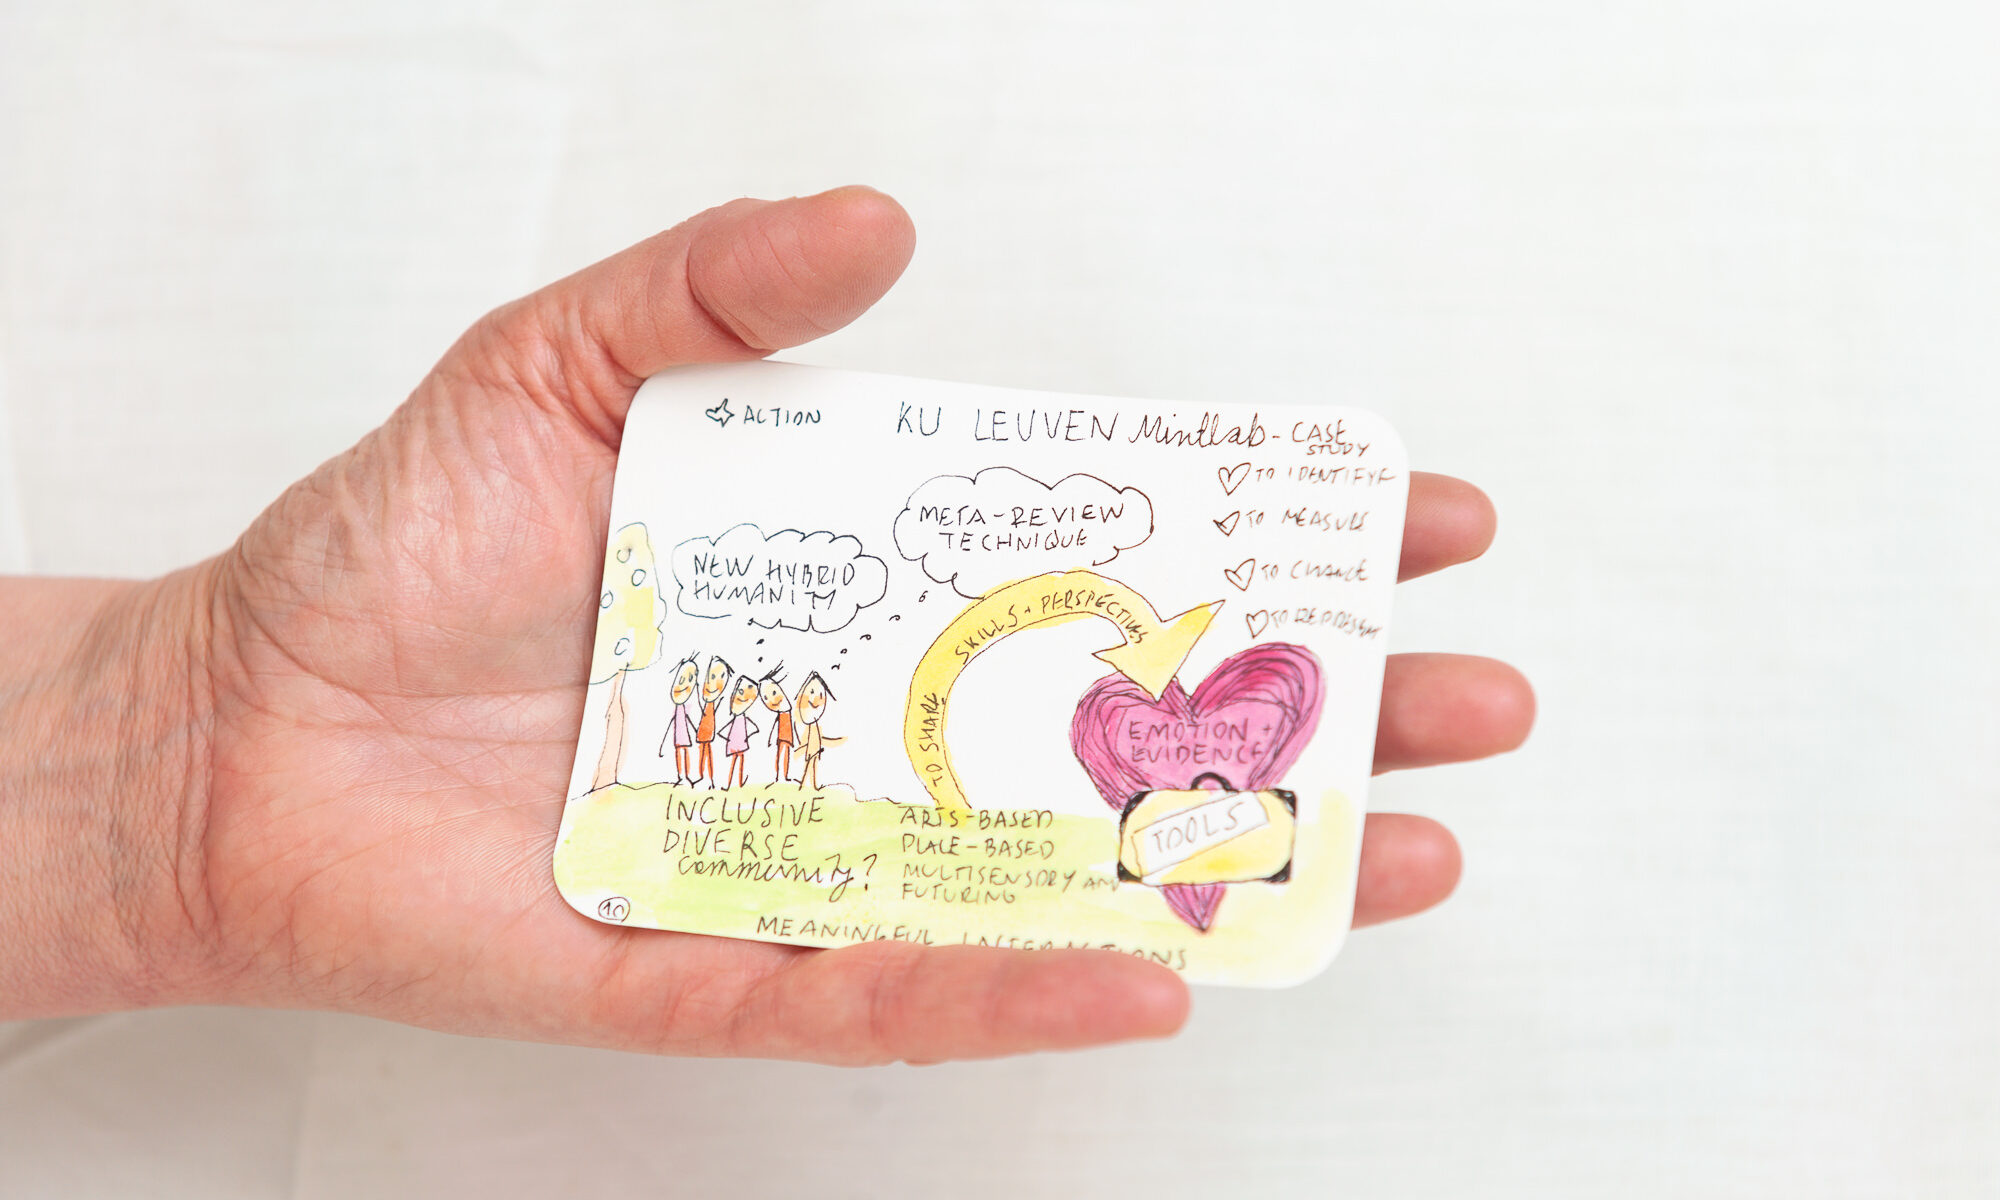 ACTION
KU LEUVEN Mindlab - CASE
STUDY
TO IDENTIFY
TO MEASURE
TO CHANGE
TO REPRESENT
META-REVIEW
TECHNIQUE
NEW HYBRID
HUMANITY
TO SHARE SKILLS + PERSPECTIVES
EMOTION +
EVIDENCE
TOOLS
INCLUSIVE
DIVERSE
community?
ARTS-BASED
PLACE-BASED
MULTISENSORY AND
FUTURING
10
MEANINGFUL INTERACTIONS